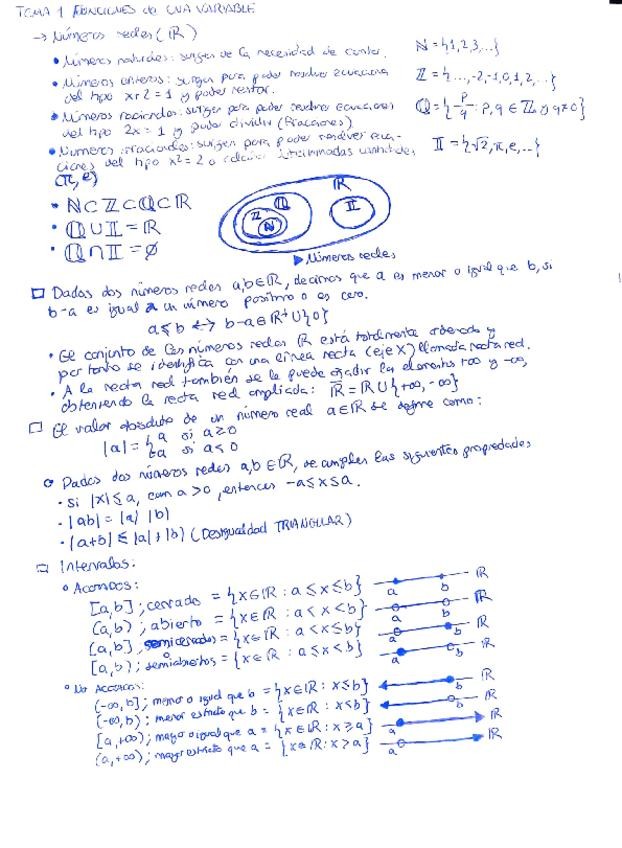 TEMA 1 FUNCIONES de UNA VARIABLE
→ Números reales (ℝ)
• Números naturales: surgen de la necesidad de contar. ℕ = {1,2,3,...}
• Números enteros: surgen para poder resolver ecuaciones ℤ = {...,-2,-1,0,1,2,...}
del tipo x+2=1 y poder restar.
• Números racionales: surgen para poder resolver ecuaciones ℚ = {p/q : p,q ∈ ℤ y q≠0}
del tipo 2x=1 y poder dividir (fracciones)
• Números irracionales: surgen para poder resolver ecua- 𝕀 = {√2, π, e,...}
ciones del tipo x²=2 o calcular determinadas cantidades
(π, e)
• ℕ⊂ℤ⊂ℚ⊂ℝ
• ℚ∪𝕀=ℝ
• ℚ∩𝕀=∅
ℝ
ℚ
ℤ
ℕ
𝕀
▶ Números reales
□ Dados dos números reales a,b∈ℝ, decimos que a es menor o igual que b, si
b-a es igual a un número positivo o es cero.
a≤b ↔ b-a∈ℝ⁺∪{0}
• El conjunto de los números reales ℝ está totalmente ordenado y
por tanto se identifica con una línea recta (eje X) llamada recta real.
• A la recta real también se le puede añadir los elementos +∞ y -∞,
obteniendo la recta real ampliada: ℝ̅ = ℝ∪{+∞, -∞}
□ El valor absoluto de un número real a∈ℝ se define como:
|a| = { a si a≥0
-a si a<0
o Dados dos números reales a,b∈ℝ, se cumplen las siguientes propiedades
• Si |x|≤a, con a>0, entonces -a≤x≤a.
• |ab| = |a| |b|
• |a+b| ≤ |a|+|b| (Desigualdad TRIANGULAR)
□ Intervalos:
o Acotados:
[a,b]; cerrado = {x∈ℝ : a≤x≤b} a b ℝ
(a,b); abierto = {x∈ℝ : a<x<b} a b ℝ
(a,b]; semicerrados = {x∈ℝ : a<x≤b} a b ℝ
[a,b); semiabiertos = {x∈ℝ : a≤x<b} a b ℝ
o No Acotados:
(-∞,b]; menor o igual que b = {x∈ℝ : x≤b} b ℝ
(-∞,b); menor estricto que b = {x∈ℝ : x<b} b ℝ
[a,+∞); mayor o igual que a = {x∈ℝ : x≥a} a ℝ
(a,+∞); mayor estricto que a = {x∈ℝ : x>a} a ℝ